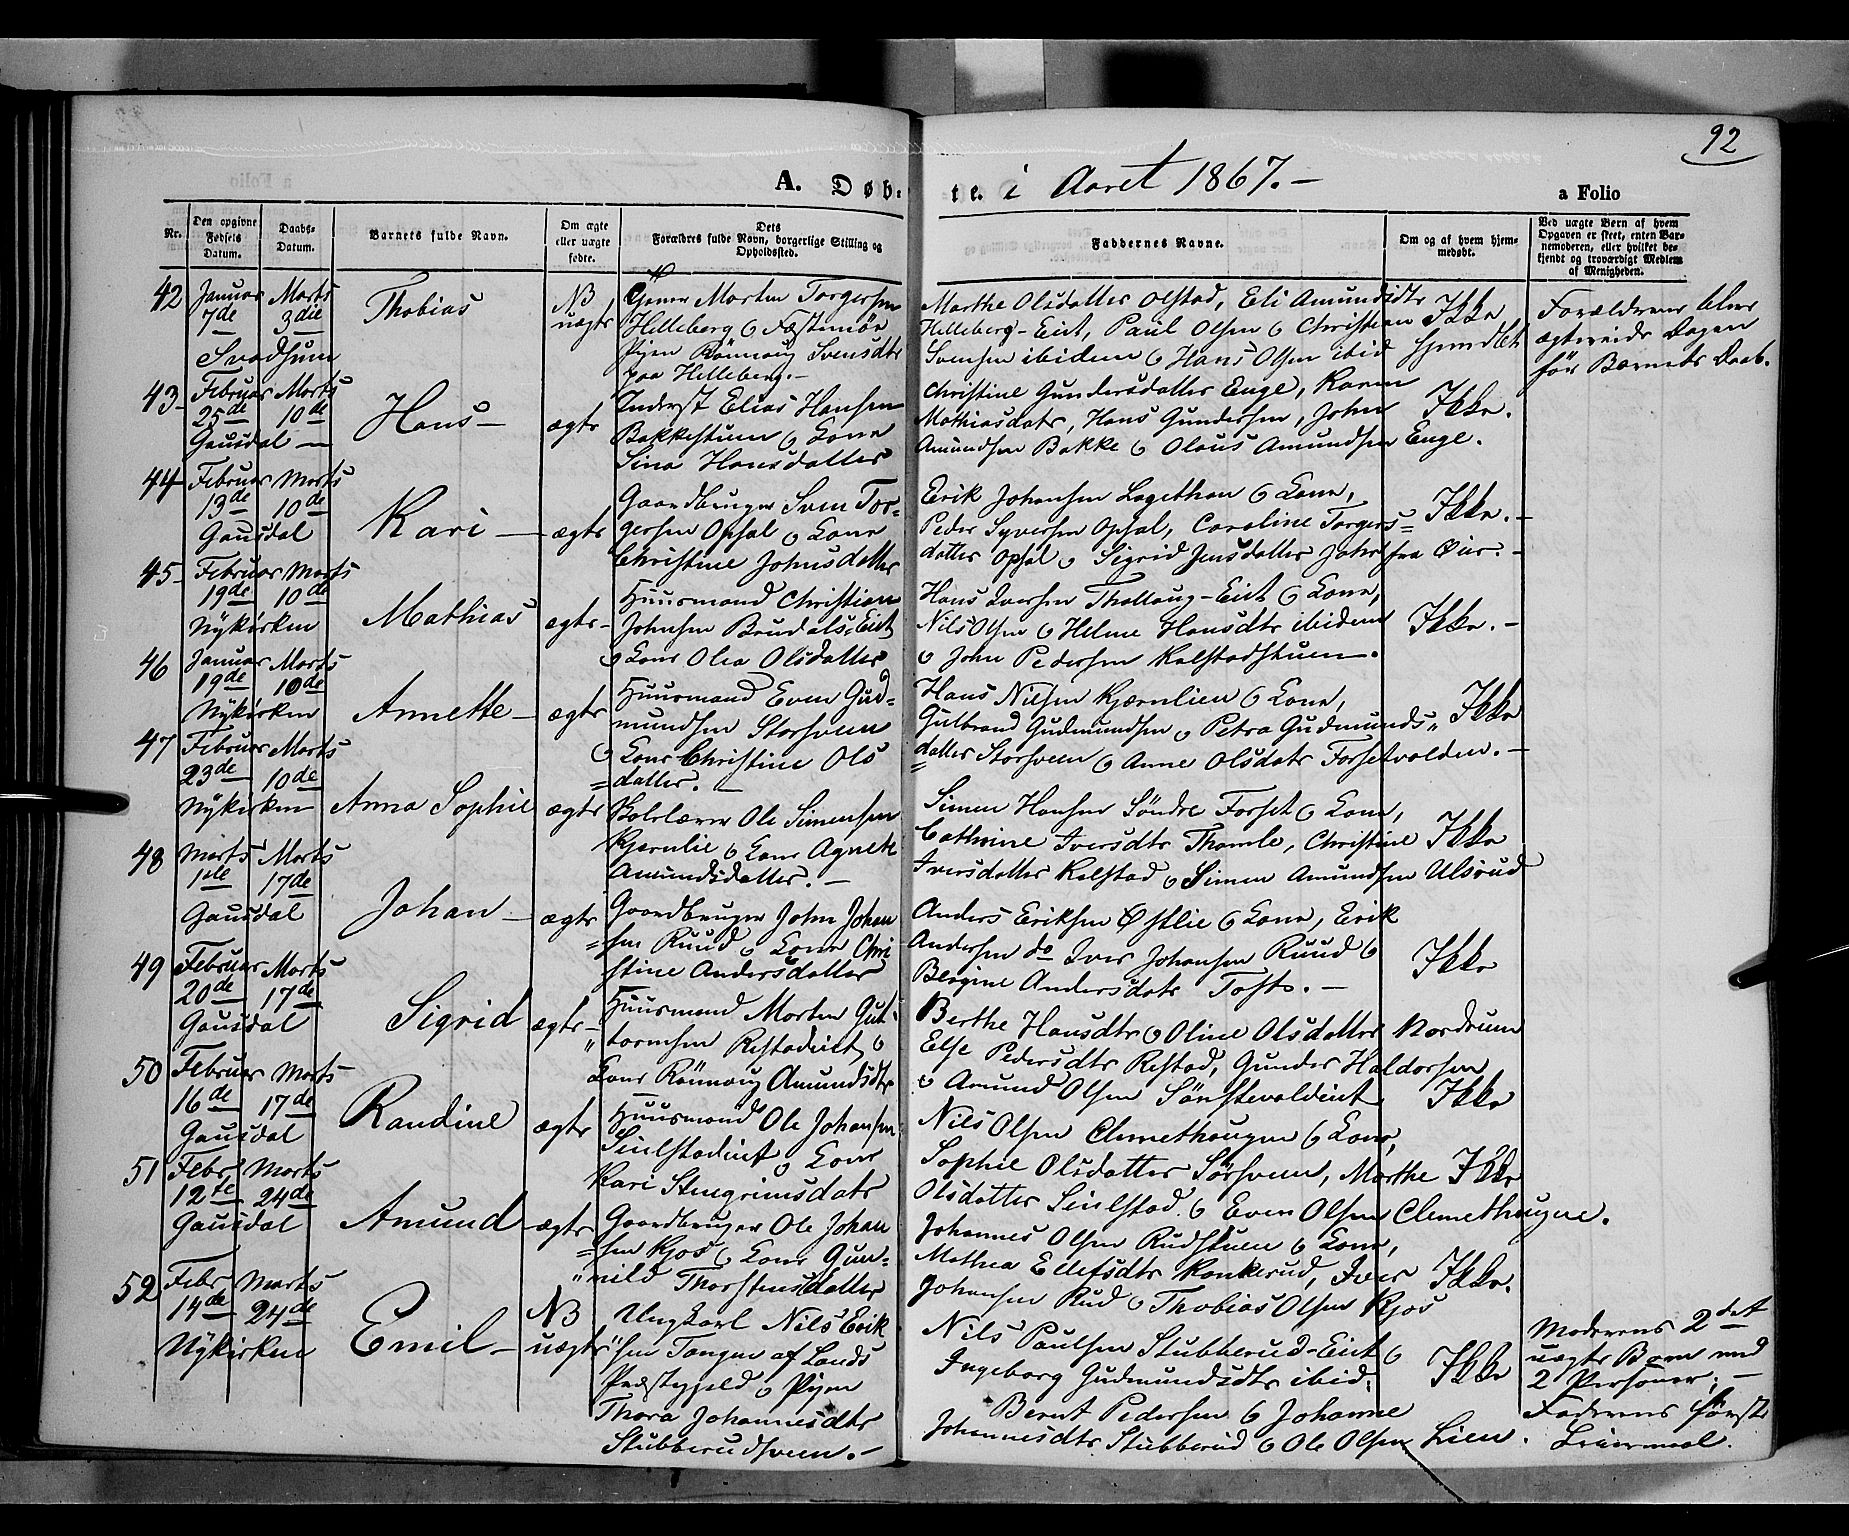 92
A. Døb-te. i Aaret 1867.-
a Folio
Nr.
Den opgivne Fødsels Datum.
Daabs-Datum.
Barnets fulde Navn.
Om ægte eller uægte fødte.
Dets Forældres fulde Navn, borgerlige Stilling og Opholdssted.
Faddernes Navne.
Om og af hvem hjem-medøbt.
Ved uægte Børn af hvem Opgaven er skeet, enten Bar-nemoderen, eller hvilket be-kjendt og troværdigt Medlem af Menigheden.
42 Januar 7de Marts 3die
Svadsum
Thobias
NB uægte
Morten Torgersen
Helleberg og Fæstemøe
Pigen Rønnoug Svensdtr
paa Helleberg.-
Marthe Olsdatter Olstad, Eli Amundsdtr
Helleberg-Eiet, Paul Olsen og Christian
Svensen ibidem og Hans Olsen ibid
Ikke hjemdøbt
Forældrene blev
ægteviede Dagen
før Barnets Daab.
43 Februar 25de Marts 10de
Gausdal
Hans
ægte
Inderst Elias Hansen
Bakkestuen og Kone
Sina Hansdatter
Christine Gundersdatter Enge, Karen
Mathiasdatr, Hans Gundersen, John
Amundsen Bakke og Olaus Amundsen Enge.
Ikke.
44 Februar 13de Marts 10de
Gausdal
Kari
ægte
Gaardbruger Sven Tor-
gersen Opsal og Kone
Christine Johnsdatter
Erik Johansen Kone,
Peder Syversen Opsal, Caroline Torgers=
datter Opsal og Sigrid Jensdatter fra Øier.-
Ikke.-
45 Februar 19de Marts 10de
Nykirken
Mathias
ægte-
Huusmand Christian
Johnsen Brudals-Eiet
og Kone Olea Olsdatter
Hans Iversen Thallaug-Eiet og Kone,
Nils Olsen og Helene Hansdtr ibidem
og John Pedersen Kalstadstuen.
Ikke.-
46 Januar 19de Marts 10de
Nykirken
Annette
ægte
Huusmand Even Gud-
mundsen Storsveen
og Kone Christine Ols
=datter.
Hans Nilsen Kjærnlien og Kone,
Gulbrand Gudmundsen og Petra Gudmunds„
datter Storsveen og Anne Olsdatr Forsetvolden.-
Ikke
47 Februar 23de Marts 10de
Nykirken
Anna Sophie
ægte
Skolelærer Ole Simensen
Kjernlie og Kone Agnete
Amundsdatter.-
Simen Hansen Søndre Forset og Kone,
Cathrine Iversdtr Thomle, Christine
Iversdatter Kalstad og Simen Amundsen Ulsrud
Ikke
48 Marts 1ste Marts 17de
Gausdal
Johan
ægte
Gaardbruger John Johan
=sen Ruud og Kone Chri
stine Andersdatter
Anders Eriksen Østlie og Kone, Erik
Andersen do Iver Johansen Ruud og
Bergine Andersdatr Tofte.-
Ikke
49 Februar 20de Marts 17de
Gausdal
Sigrid
ægte-
Huusmand Morten Gut-
„tormsen Restadeiet og
Kone Rønnoug Amundsdtr
Berthe Hansdtr og Oline Olsdatter Nordrum
Else Pedersdtr Restad, Gunder Haldorsen
og Amund Olsen
Ikke
50 Februar 16de Marts 17de
Gausdal
Randine
ægte
Huusmand Ole Johansen
Seielstadeiet og Kone
Kari Stengrimsdatr
Nils Olsen Clemethaugen og Kone,
Sophie Olsdatter Sørsveen, Marthe
Olsdatter Seielstad og Even Olsen Clemethaugen.
Ikke
51 Febr 12te Marts 24de
Gausdal
Amund
ægte
Gaardbruger Ole Johan
=sen Kjos og Kone Gun-
„nild Thorstensdatter
Johannes Olsen Rudstuen og Kone,
Mathea Ellefsdtr Kankerud, Iver
Johansen Rud og Thobias Olsen Kjos
Ikke.
52 Febr 14de Marts 24de
Nykirken
Emil
NB uægte
Ungkarl Nils Erik
sen Tangen af Lands
Præstegjeld og Pigen
Thora Johannesdtr
Stubberudsveen.-
Nils Paulsen Stubberud-Eiet og
Ingeborg Gudmundsdtr ibid,
Bernt Pedersen og Johanne
Johannesdtr Stubberud og Ole Olsen Lien.
Ikke
Moderens 2det
uægte Barn med
2 Personer;-
Faderens første
Leiermaal.